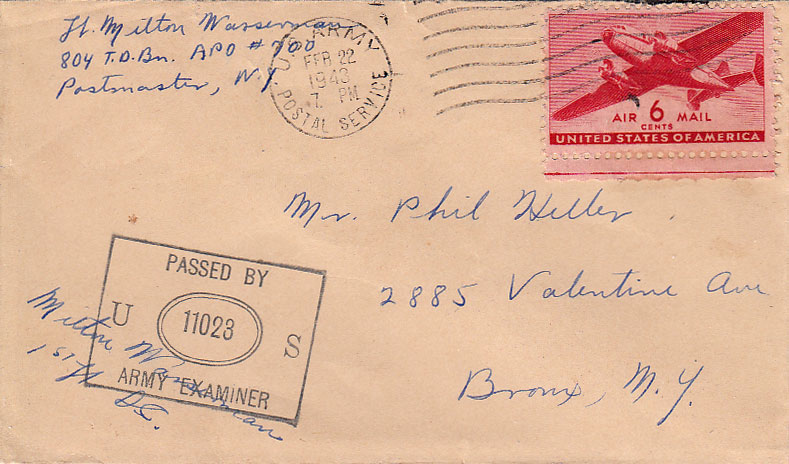 Lt. Milton Wasserman
804 T.D.Bn. APO # 700
Postmaster, N.Y.
U.S. ARMY
FEB 22
1943
7 PM
POSTAL SERVICE
AIR 6 MAIL
CENTS
UNITED STATES OF AMERICA
Mr. Phil Heller
2885 Valentine Ave
Bronx, N.Y.
PASSED BY
U 11023 S
ARMY EXAMINER
Milton Wasserman
1st Lt